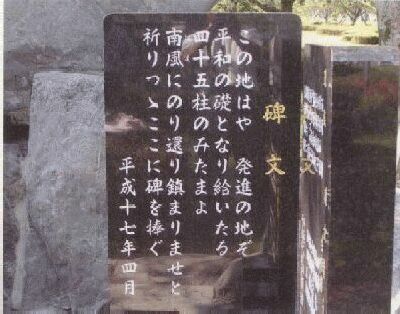 碑文
この地はや　発進の地ぞ
平和の礎となり給いたる
四十五柱のみたまよ
南風にのり還り鎮まりませと
祈りつゝここに碑を捧ぐ
平成十七年四月